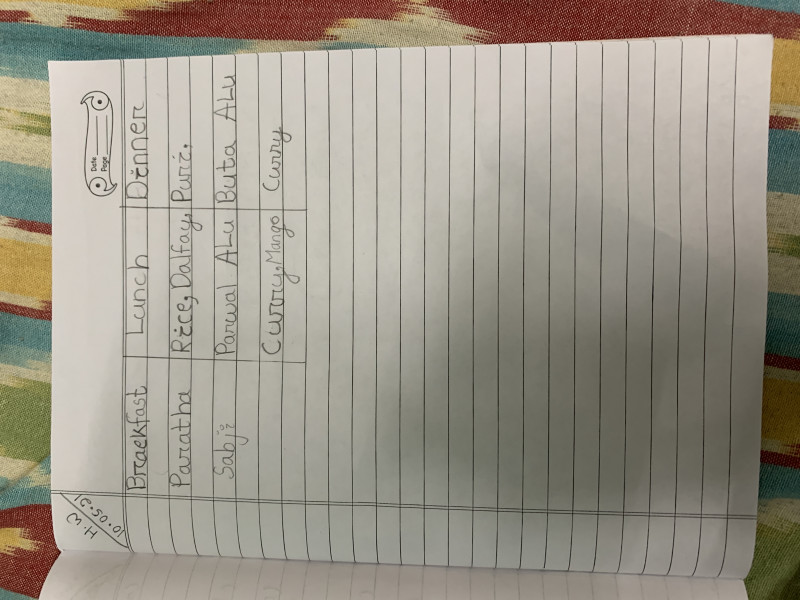 H.W
10.05.21
Date
Page
Braekfast Lunch Dinner
Paratha Rice, Dalfay, Puri.
Sabji Parwal ALu Buta ALu
Curry, Mango Curry